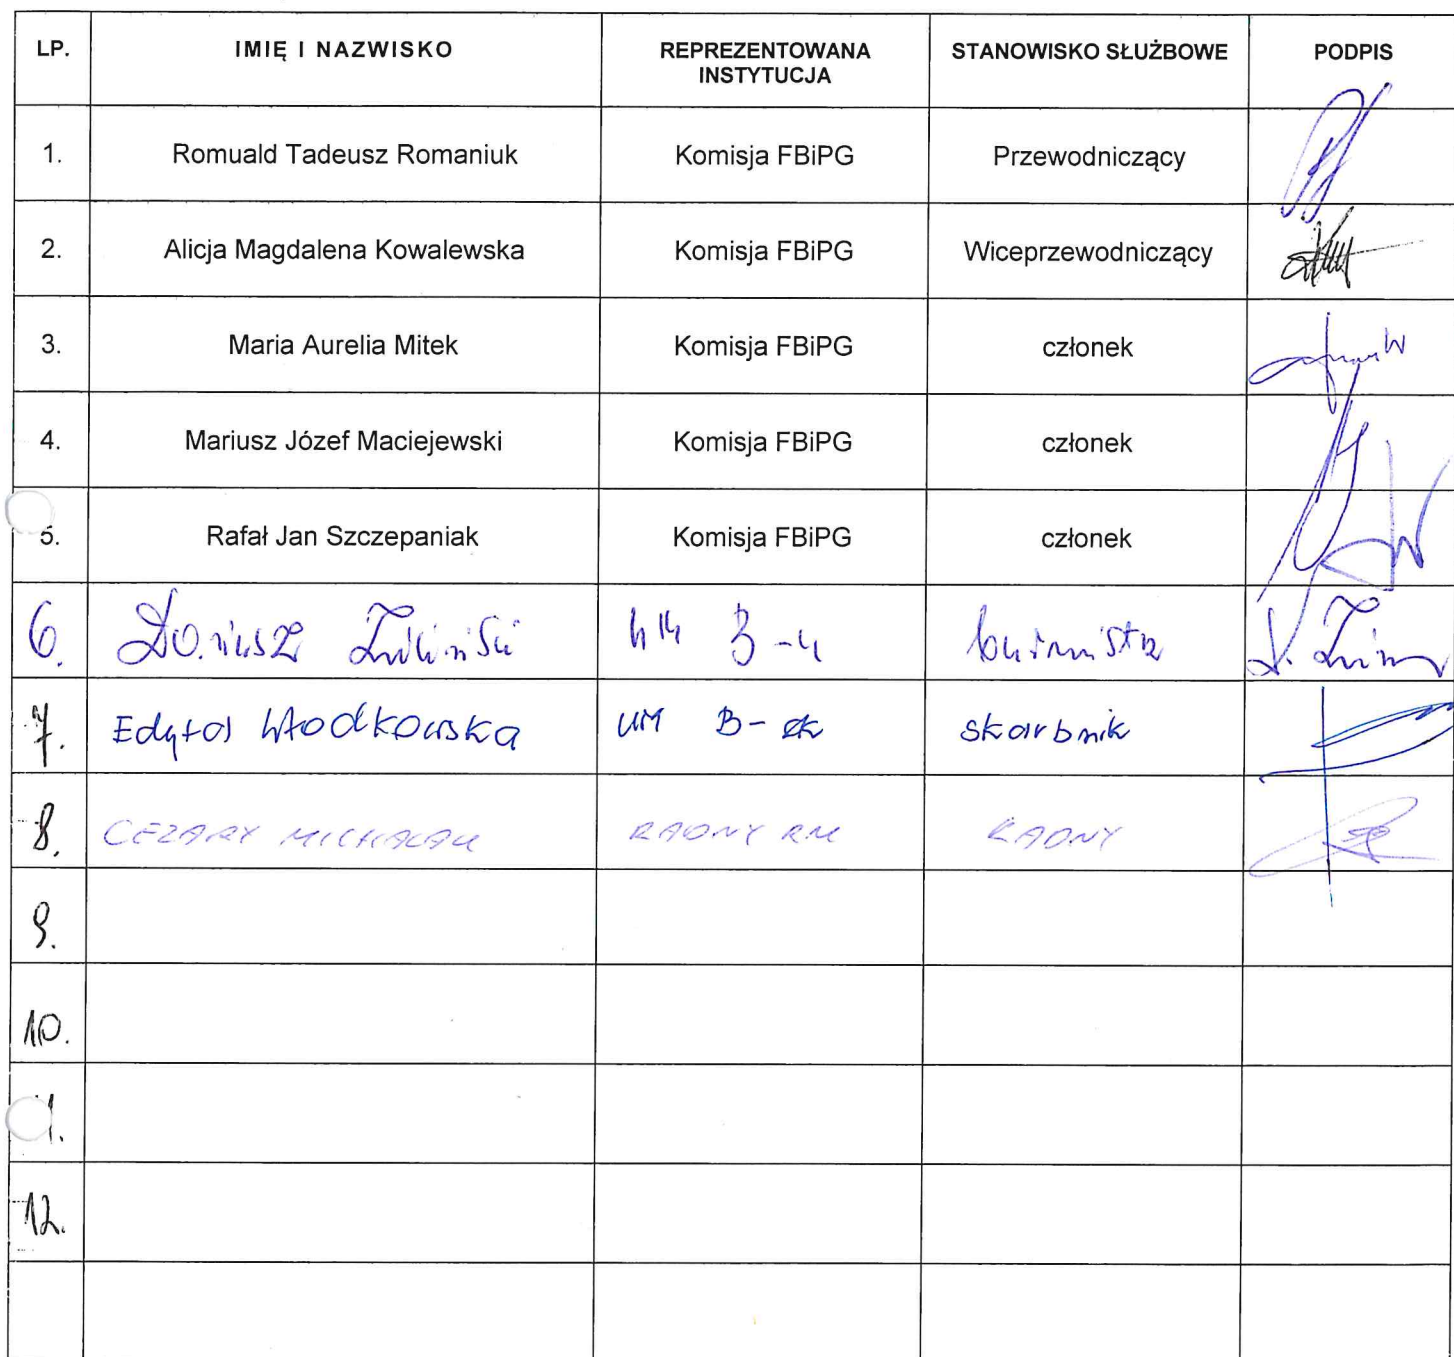 LP. IMIĘ I NAZWISKO REPREZENTOWANA INSTYTUCJA STANOWISKO SŁUŻBOWE PODPIS
1. Romuald Tadeusz Romaniuk Komisja FBiPG Przewodniczący
2. Alicja Magdalena Kowalewska Komisja FBiPG Wiceprzewodniczący
3. Maria Aurelia Mitek Komisja FBiPG członek
4. Mariusz Józef Maciejewski Komisja FBiPG członek
5. Rafał Jan Szczepaniak Komisja FBiPG członek
6. Dariusz burmistrz
7. Edyta Włodkowska UM skarbnik
8. CEZARY RADNY RM RADNY
9.
10.
11.
12.